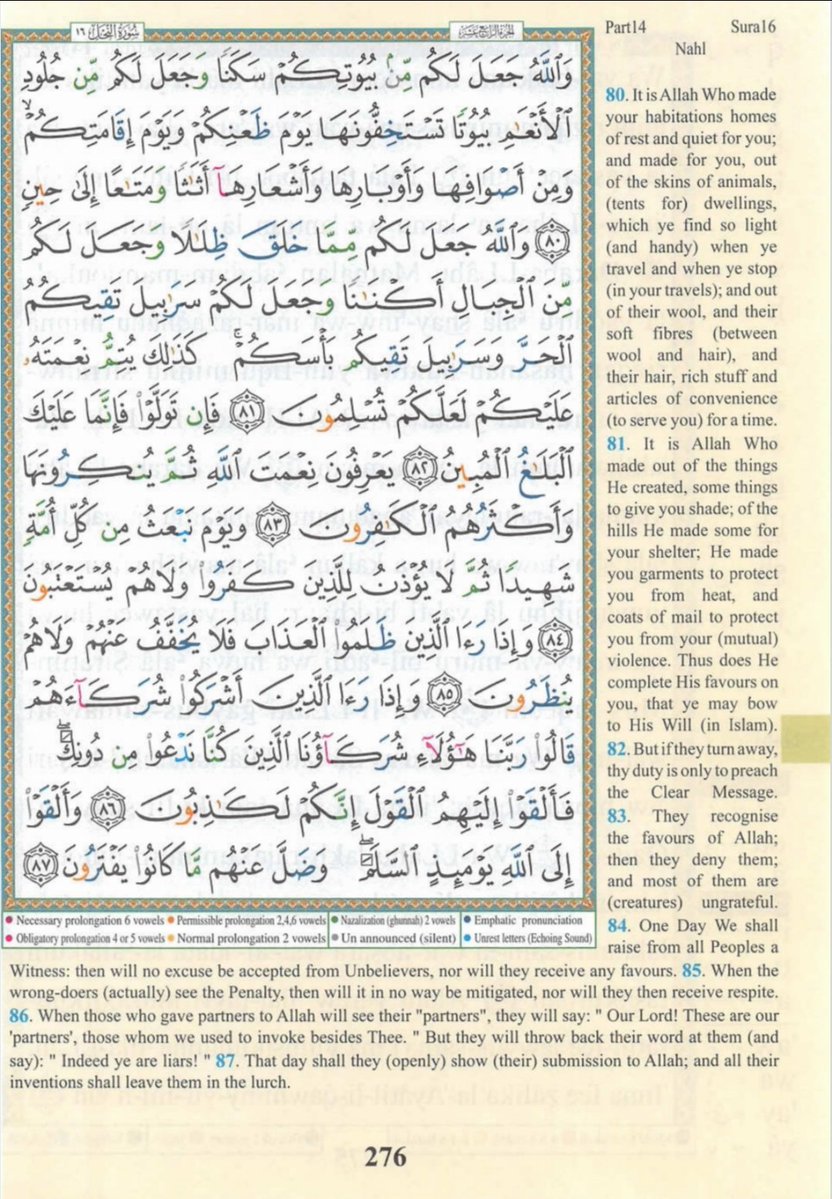 Part14 Sura16
Nahl
سورة النحل ١٦
الجزء الرابع عشر
وَاللَّهُ جَعَلَ لَكُم مِّنۢ بُيُوتِكُمْ سَكَنًا وَجَعَلَ لَكُم مِّن جُلُودِ
الْأَنْعَٰمِ بُيُوتًا تَسْتَخِفُّونَهَا يَوْمَ ظَعْنِكُمْ وَيَوْمَ إِقَامَتِكُمْ ۙ
وَمِنْ أَصْوَافِهَا وَأَوْبَارِهَا وَأَشْعَارِهَآ أَثَٰثًا وَمَتَٰعًا إِلَىٰ حِينٍ
٨٠ وَاللَّهُ جَعَلَ لَكُم مِّمَّا خَلَقَ ظِلَٰلًا وَجَعَلَ لَكُم
مِّنَ الْجِبَالِ أَكْنَٰنًا وَجَعَلَ لَكُمْ سَرَٰبِيلَ تَقِيكُمُ
الْحَرَّ وَسَرَٰبِيلَ تَقِيكُم بَأْسَكُمْ ۚ كَذَٰلِكَ يُتِمُّ نِعْمَتَهُۥ
عَلَيْكُمْ لَعَلَّكُمْ تُسْلِمُونَ ٨١ فَإِن تَوَلَّوْا۟ فَإِنَّمَا عَلَيْكَ
الْبَلَٰغُ الْمُبِينُ ٨٢ يَعْرِفُونَ نِعْمَتَ اللَّهِ ثُمَّ يُنكِرُونَهَا
وَأَكْثَرُهُمُ الْكَٰفِرُونَ ٨٣ وَيَوْمَ نَبْعَثُ مِن كُلِّ أُمَّةٍ
شَهِيدًا ثُمَّ لَا يُؤْذَنُ لِلَّذِينَ كَفَرُوا۟ وَلَا هُمْ يُسْتَعْتَبُونَ
٨٤ وَإِذَا رَءَا الَّذِينَ ظَلَمُوا۟ الْعَذَابَ فَلَا يُخَفَّفُ عَنْهُمْ وَلَا هُمْ
يُنظَرُونَ ٨٥ وَإِذَا رَءَا الَّذِينَ أَشْرَكُوا۟ شُرَكَآءَهُمْ
قَالُوا۟ رَبَّنَا هَٰٓؤُلَآءِ شُرَكَآؤُنَا الَّذِينَ كُنَّا نَدْعُوا۟ مِن دُونِكَ ۖ
فَأَلْقَوْا۟ إِلَيْهِمُ الْقَوْلَ إِنَّكُمْ لَكَٰذِبُونَ ٨٦ وَأَلْقَوْا۟
إِلَى اللَّهِ يَوْمَئِذٍ السَّلَمَ ۖ وَضَلَّ عَنْهُم مَّا كَانُوا۟ يَفْتَرُونَ ٨٧
Necessary prolongation 6 vowels Permissible prolongation 2,4,6 vowels Nazalization (ghunnah) 2 vowels Emphatic pronunciation
Obligatory prolongation 4 or 5 vowels Normal prolongation 2 vowels Un announced (silent) Unrest letters (Echoing Sound)
80. It is Allah Who made
your habitations homes
of rest and quiet for you;
and made for you, out
of the skins of animals,
(tents for) dwellings,
which ye find so light
(and handy) when ye
travel and when ye stop
(in your travels); and out
of their wool, and their
soft fibres (between
wool and hair), and
their hair, rich stuff and
articles of convenience
(to serve you) for a time.
81. It is Allah Who
made out of the things
He created, some things
to give you shade; of the
hills He made some for
your shelter; He made
you garments to protect
you from heat, and
coats of mail to protect
you from your (mutual)
violence. Thus does He
complete His favours on
you, that ye may bow
to His Will (in Islam).
82. But if they turn away,
thy duty is only to preach
the Clear Message.
83. They recognise
the favours of Allah;
then they deny them;
and most of them are
(creatures) ungrateful.
84. One Day We shall
raise from all Peoples a
Witness: then will no excuse be accepted from Unbelievers, nor will they receive any favours. 85. When the
wrong-doers (actually) see the Penalty, then will it in no way be mitigated, nor will they then receive respite.
86. When those who gave partners to Allah will see their "partners", they will say: " Our Lord! These are our
'partners', those whom we used to invoke besides Thee. " But they will throw back their word at them (and
say): " Indeed ye are liars! " 87. That day shall they (openly) show (their) submission to Allah; and all their
inventions shall leave them in the lurch.
276